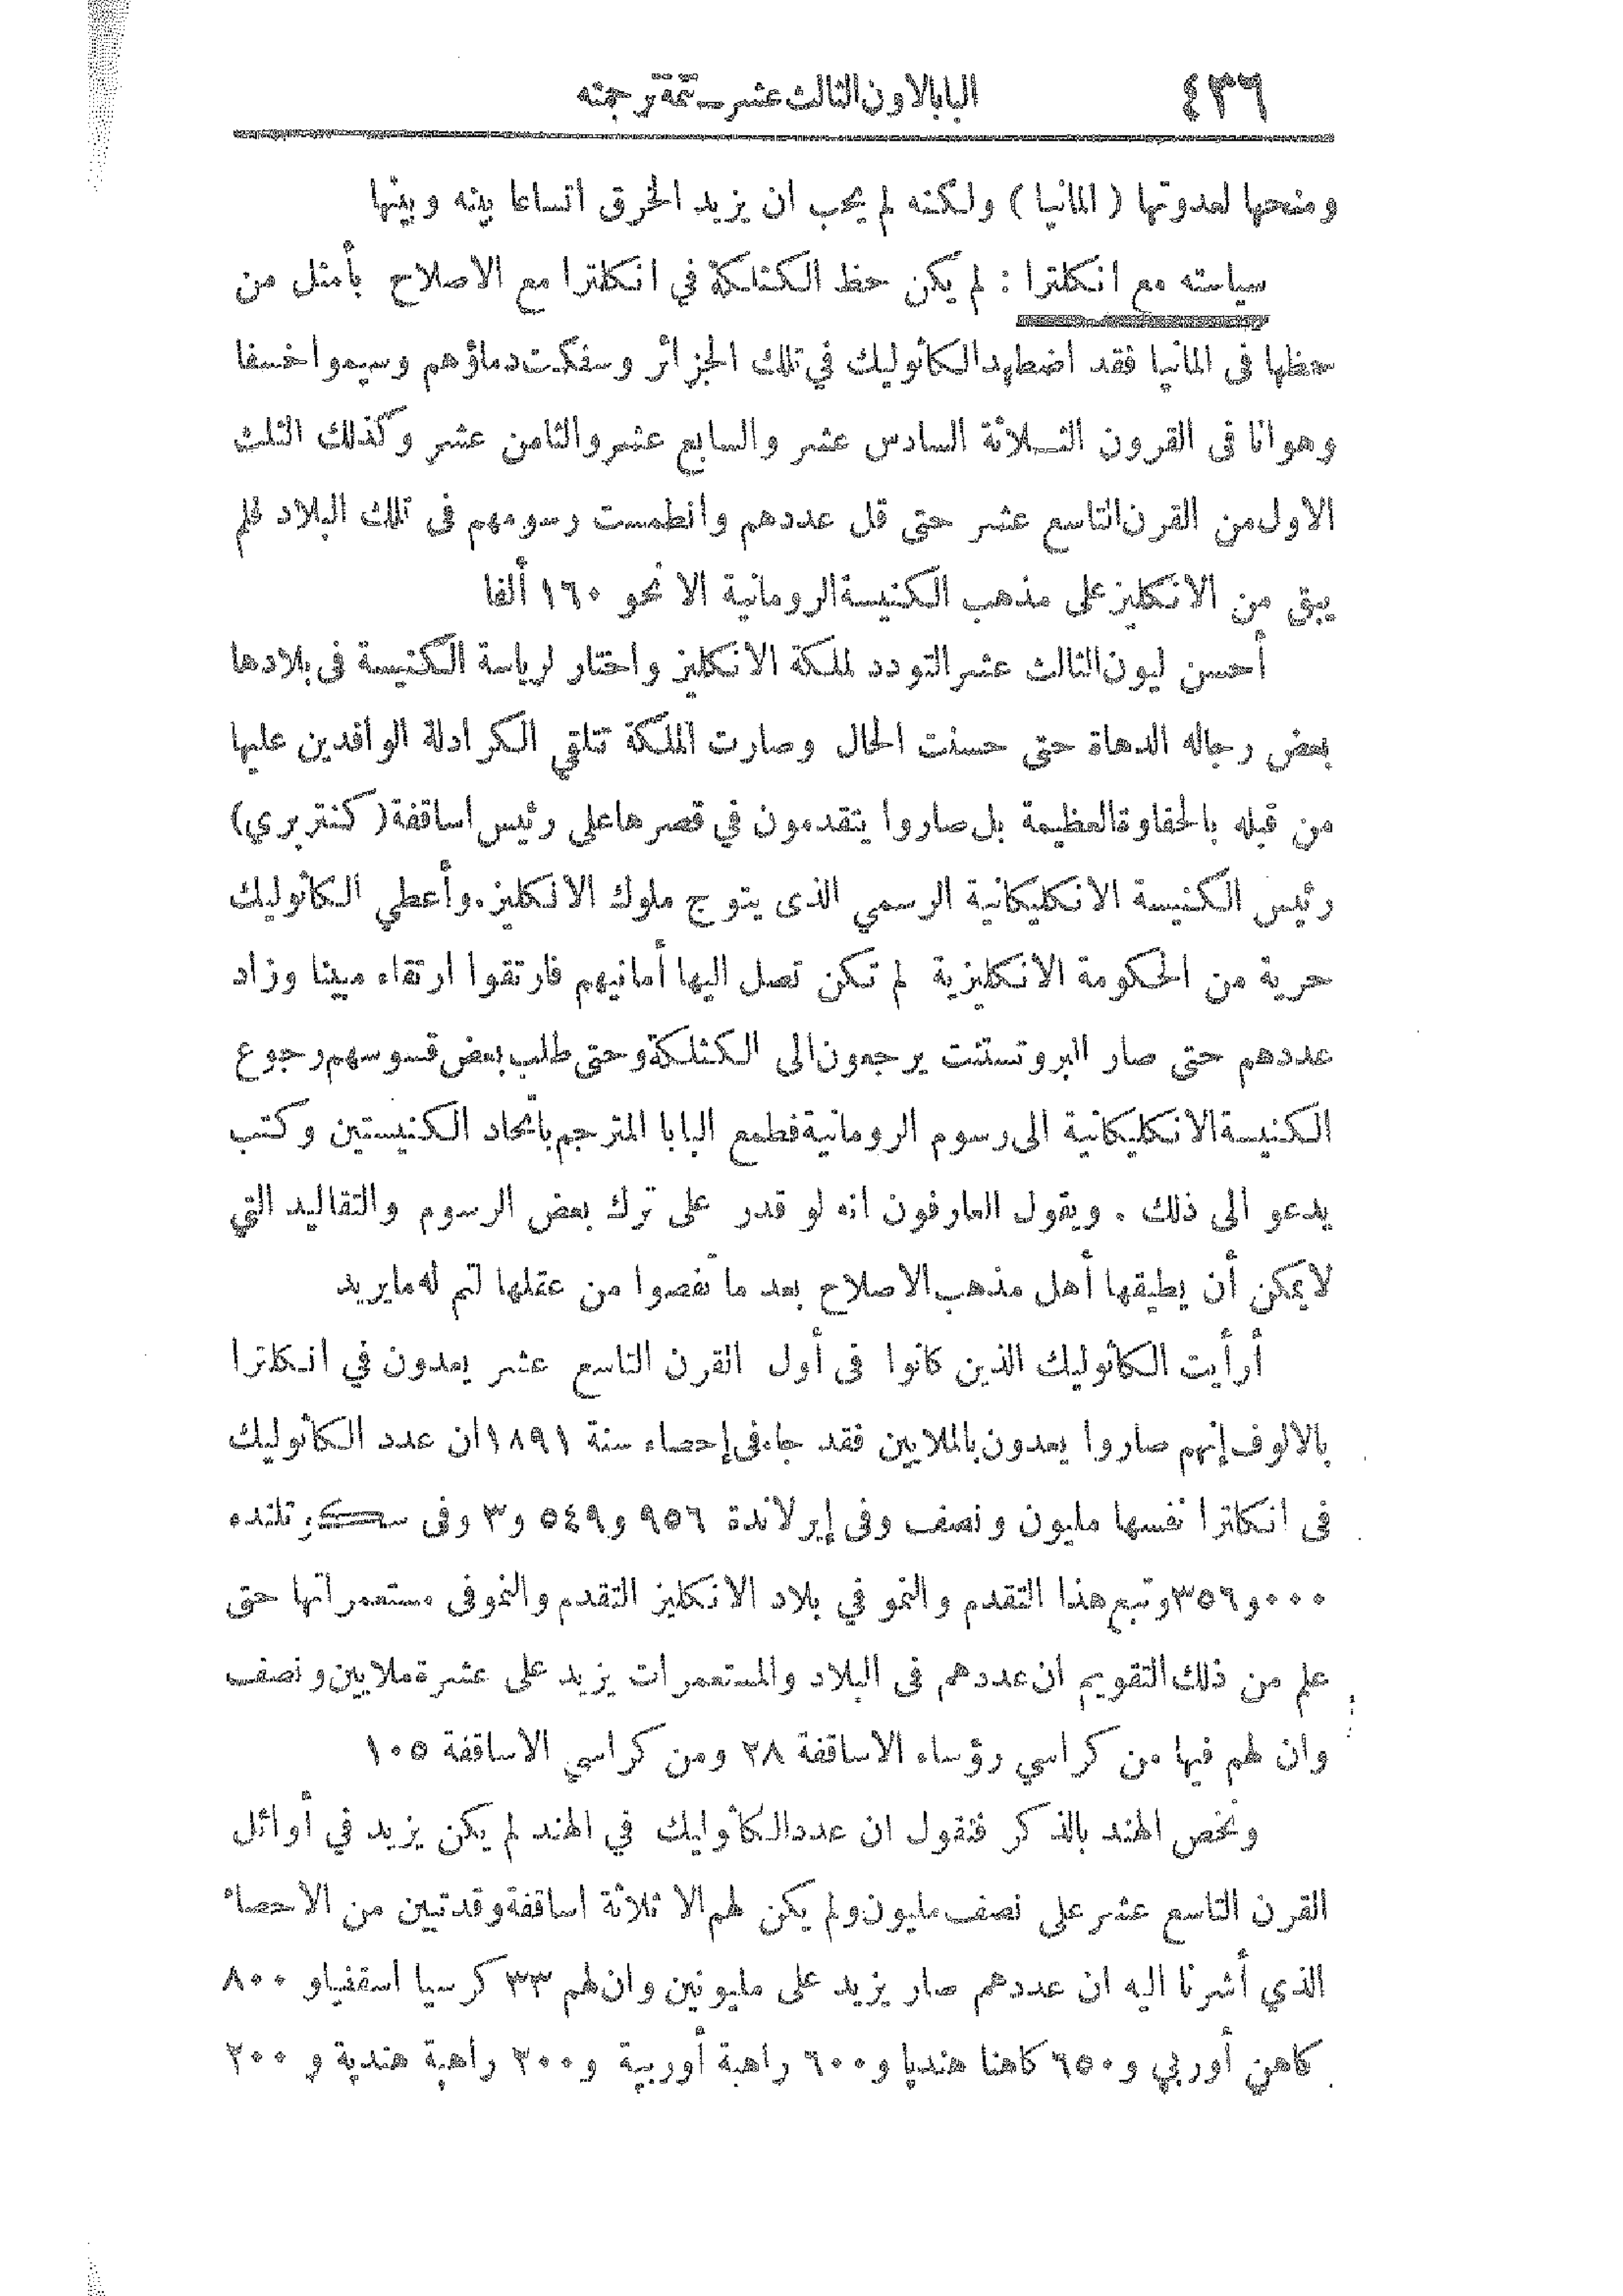 ٤٣٦ البابا لاون الثالث عشر — تتمة ترجمته
ومنحها لعدوتها ( المانيا ) ولكنه لم يحب ان يزيد الخرق اتساعا بينه وبينها
سياسته مع انكلترا : لم يكن حظ الكثلكة في انكلترا مع الاصلاح بأمثل من
حظها فى المانيا فقد اضطهد الكاثوليك في تلك الجزائر وسفكت دماؤهم وسيموا خسفا
وهوانا فى القرون الثــلاثة السادس عشر والسابع عشر والثامن عشر وكذلك الثلث
الاول من القرن التاسع عشر حتى قل عددهم وانطمست رسومهم فى تلك البلاد فلم
يبق من الانكليز على مذهب الكنيسة الرومانية الا نحو ١٦٠ ألفا
أحسن ليون الثالث عشر التودد لملكة الانكليز واختار لرياسة الكنيسة فى بلادها
بعض رجاله الدهاة حتى حسنت الحال وصارت الملكة تتلقى الكرادلة الوافدين عليها
من قبله بالحفاوة العظيمة بل صاروا يتقدمون في قصرها على رئيس اساقفة ( كنتربري )
رئيس الكنيسة الانكليكانية الرسمي الذى يتوج ملوك الانكليز . وأعطي الكاثوليك
حرية من الحكومة الانكليزية لم تكن تصل اليها أمانيهم فارتقوا ارتقاء مبينا وزاد
عددهم حتى صار البروتستنت يرجعون الى الكثلكة وحتى طلب بعض قسوسهم رجوع
الكنيسة الانكليكانية الى رسوم الرومانية فطمع البابا المترجم باتحاد الكنيستين وكتب
يدعو الى ذلك . ويقول العارفون انه لو قدر على ترك بعض الرسوم والتقاليد التي
لا يمكن أن يطيقها أهل مذهب الاصلاح بعد ما تفصوا من عقلها لتم له ما يريد
أرأيت الكاثوليك الذين كانوا فى أول القرن التاسع عشر يعدون في انكلترا
بالالوف إنهم صاروا يعدون بالملايين فقد جاء فى إحصاء سنة ١٨٩١ ان عدد الكاثوليك
فى انكلترا نفسها مليون ونصف وفى إيرلاندة ٩٥٦ و٥٤٩ و٣ وفى سكوتلنده
٠٠٠ و٣٥٦ وتبع هذا التقدم والنمو في بلاد الانكليز التقدم والنمو فى مستعمراتها حتى
علم من ذلك التقويم ان عددهم فى البلاد والمستعمرات يزيد على عشرة ملايين ونصف
وان لهم فيها من كراسي رؤساء الاساقفة ٢٨ ومن كراسي الاساقفة ١٠٥
ونخص الهند بالذكر فنقول ان عدد الكاثوليك في الهند لم يكن يزيد في أوائل
القرن التاسع عشر على نصف مليون ولم يكن لهم الا ثلاثة اساقفة وقد تبين من الاحصاء
الذي أشرنا اليه ان عددهم صار يزيد على مليونين وان لهم ٣٣ كرسيا اسقفيا و ٨٠٠
كاهن أوربي و ٦٥٠ كاهنا هنديا و ٦٠٠ راهبة أوربية و ٣٠٠ راهبة هندية و ٢٠٠